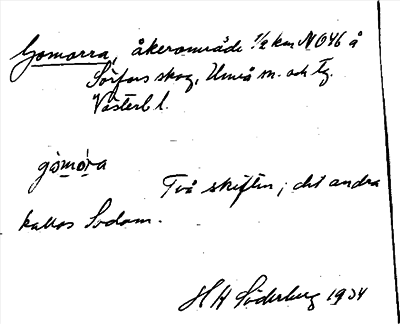 Gomorra, åkerområde 1/2 km N 046 å
Sörfors skog, Umeå sn. och tg.
Västerb l.
gòmór̀a
Två skiften; det andra
kallas Sodom.
H H Söderberg 1934